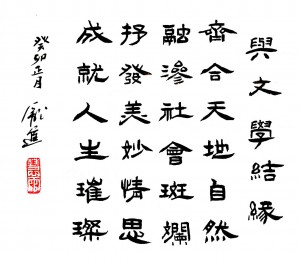 與文學結緣
齊合天地自然
融滲社會斑斕
抒發美妙情思
成就人生璀璨
癸卯正月